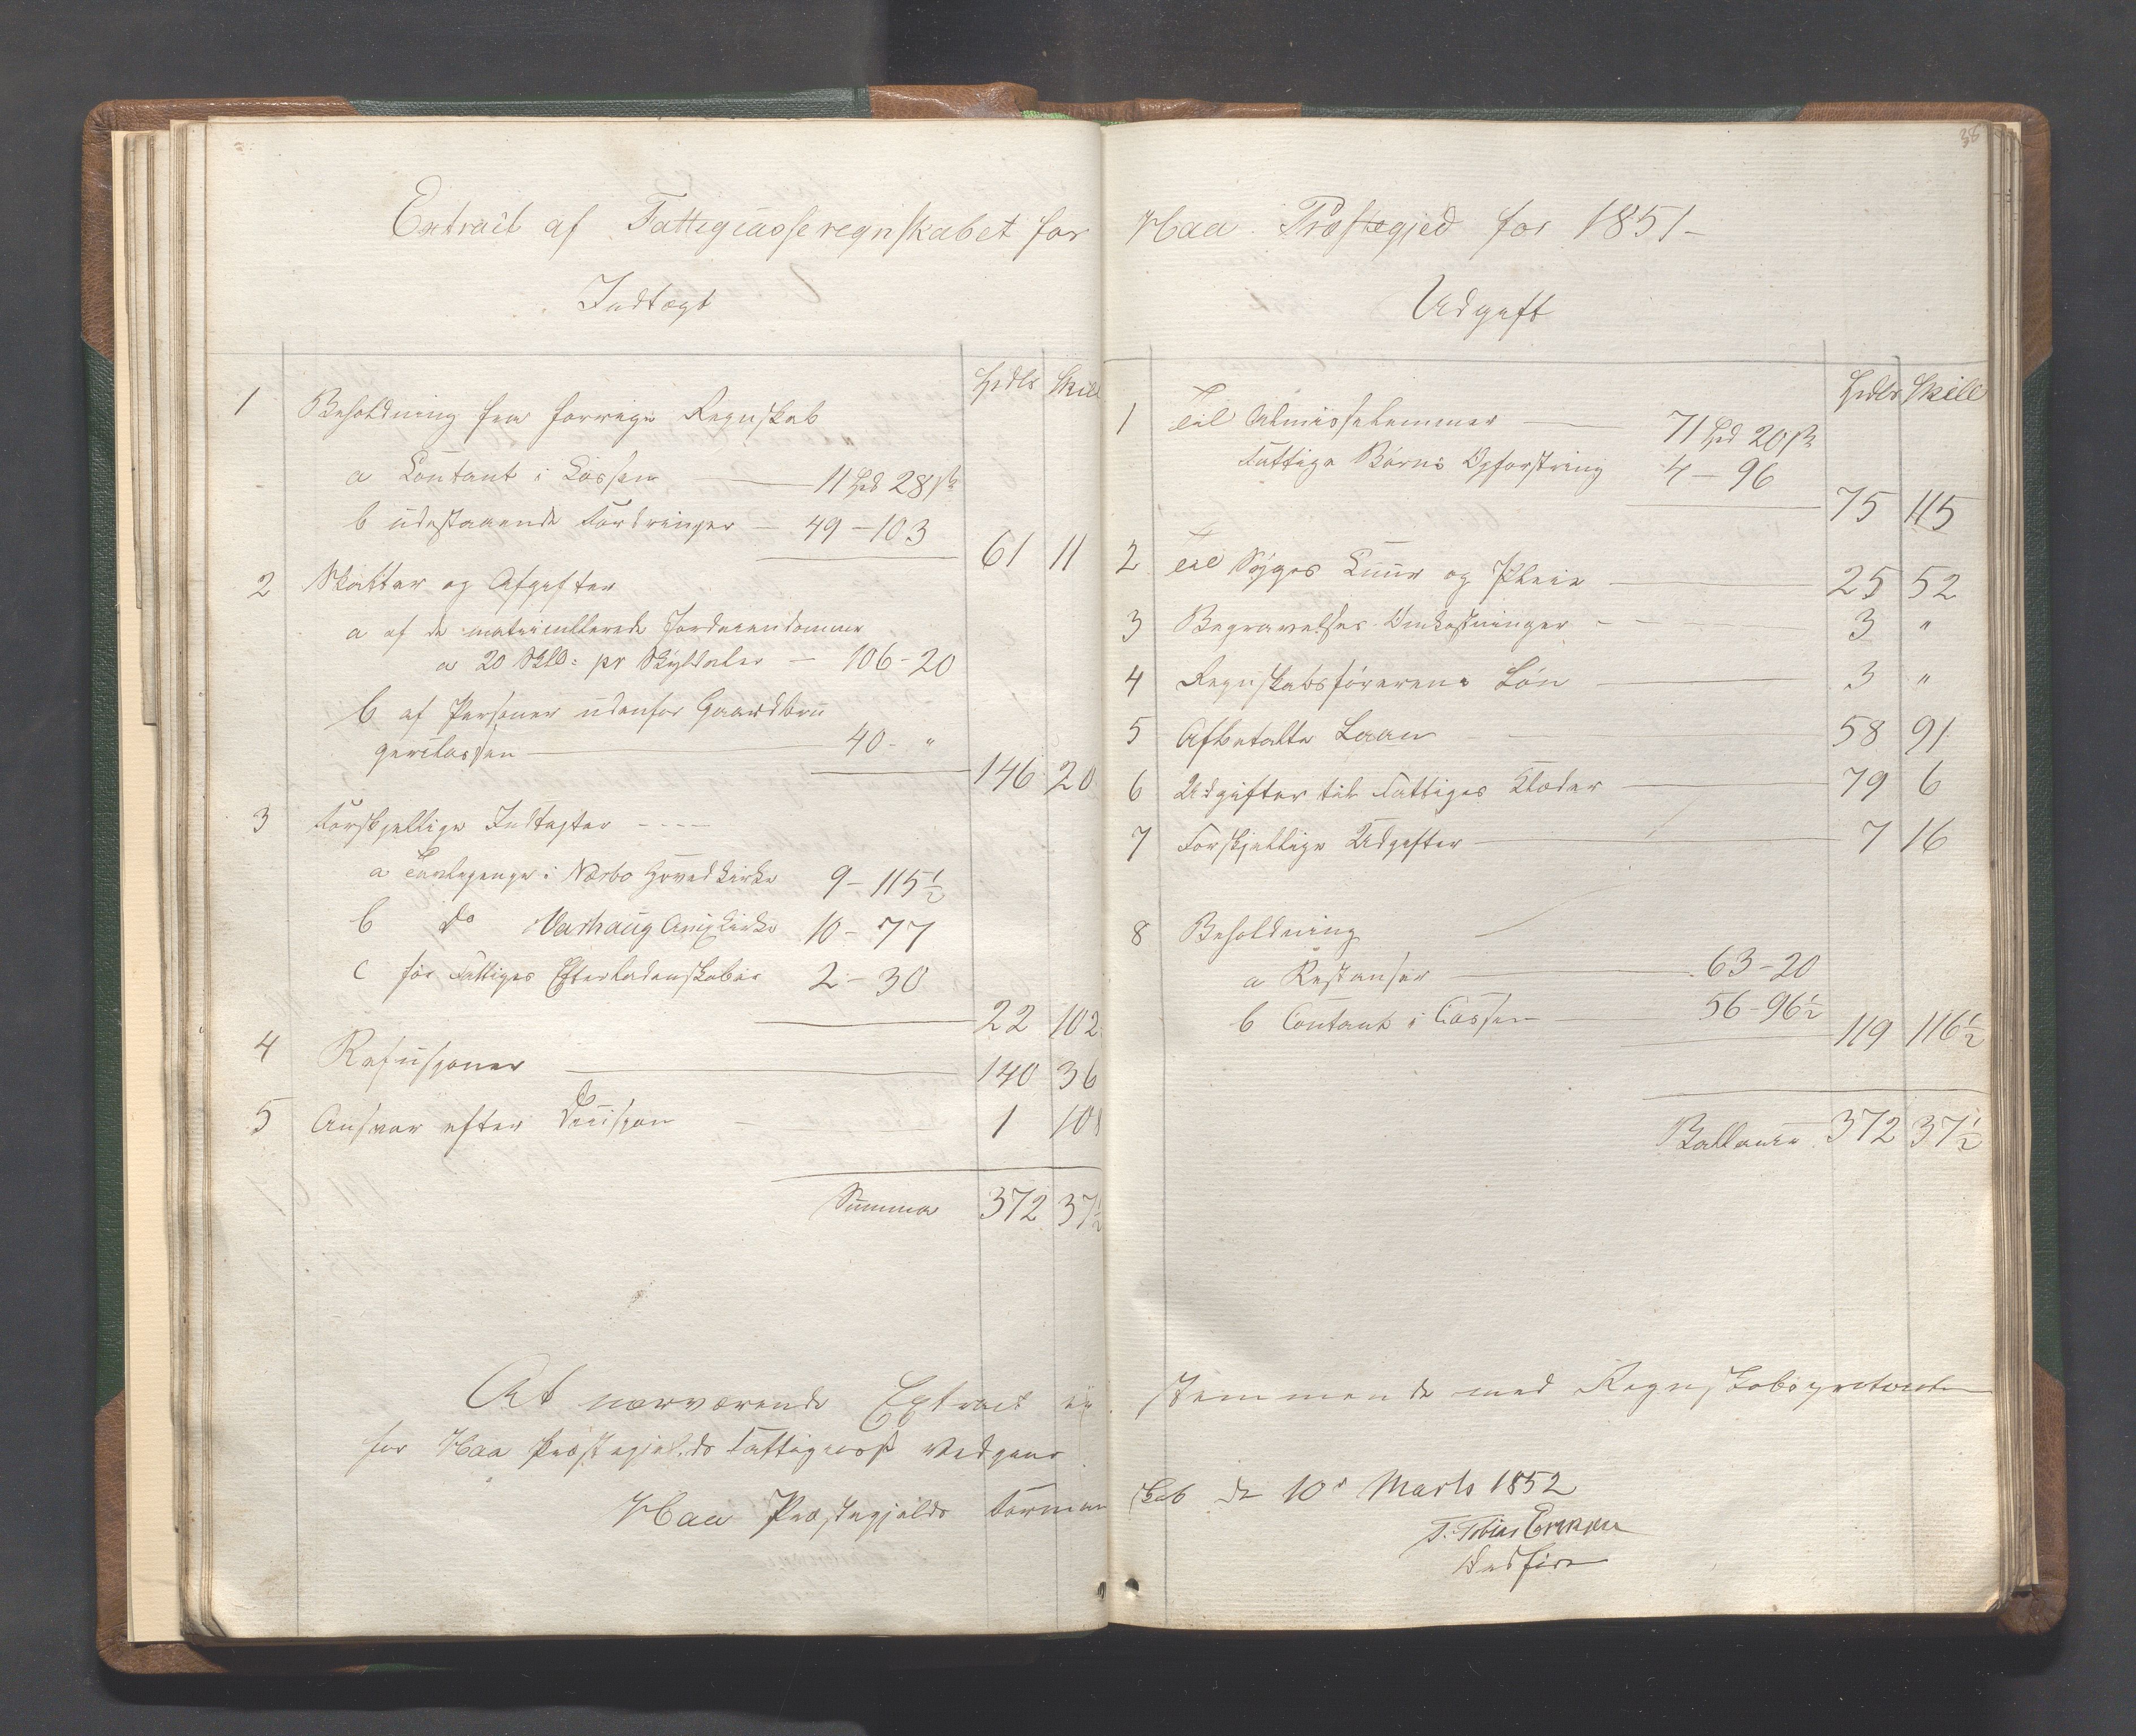 38
Extrait af Fattigcasseregnskabet for Haa Præstegjed for 1851-
Indtægt
Spdlr Skill
1 Beholdning fra forrige Regnskab
a Contant i Cassen 11 Spd 28 sk
b udestaaende Fordringer - 49 - 103
61 11
2 Skatter og Afgifter
a af de matriculerede Jordeiendomme
a 20 Skll: pr Skyldaler - 106 - 20
b af Personer udenfor Gaardbru
gerclassen 40 - "
146 20
3 Forskjellige Indtægter ----
a Tavlepenge i Nærbo Hovedkirke 9 - 115½
b do Varhaug Anexkirke 10 - 77
c for Fattiges Efterladenskaber 2 - 30
22 102
4 Refusjoner 140 36
5 Ansvar efter Decisjon 1 101
Summa 372 37½
At nærværende Extract er stemmende med Regnskabsprotocollen
for Haa Præstegjelds Fattigcasse
Haa Præstegjelds Formandskab de 10de Marts 1852
T. Tobias Eriksen
Udgift
Spdlr Skill
1 Til Almisselemmer 71 Spd 20 sk
Fattige Børns Opfostring 4 - 96
75 115
2 Til Syges Cuur og Pleie 25 52
3 Begravelses Omkostninger - 3 "
4 Regnskabsførerens Løn 3 "
5 Afbetalte Laan 58 91
6 Udgifter til Fattiges Klæder 79 6
7 Forskjellige Udgifter 7 16
8 Beholdning
a Restanser 63 - 20
b Contant i Cassen 56 - 96½
119 116½
Ballance 372 37½